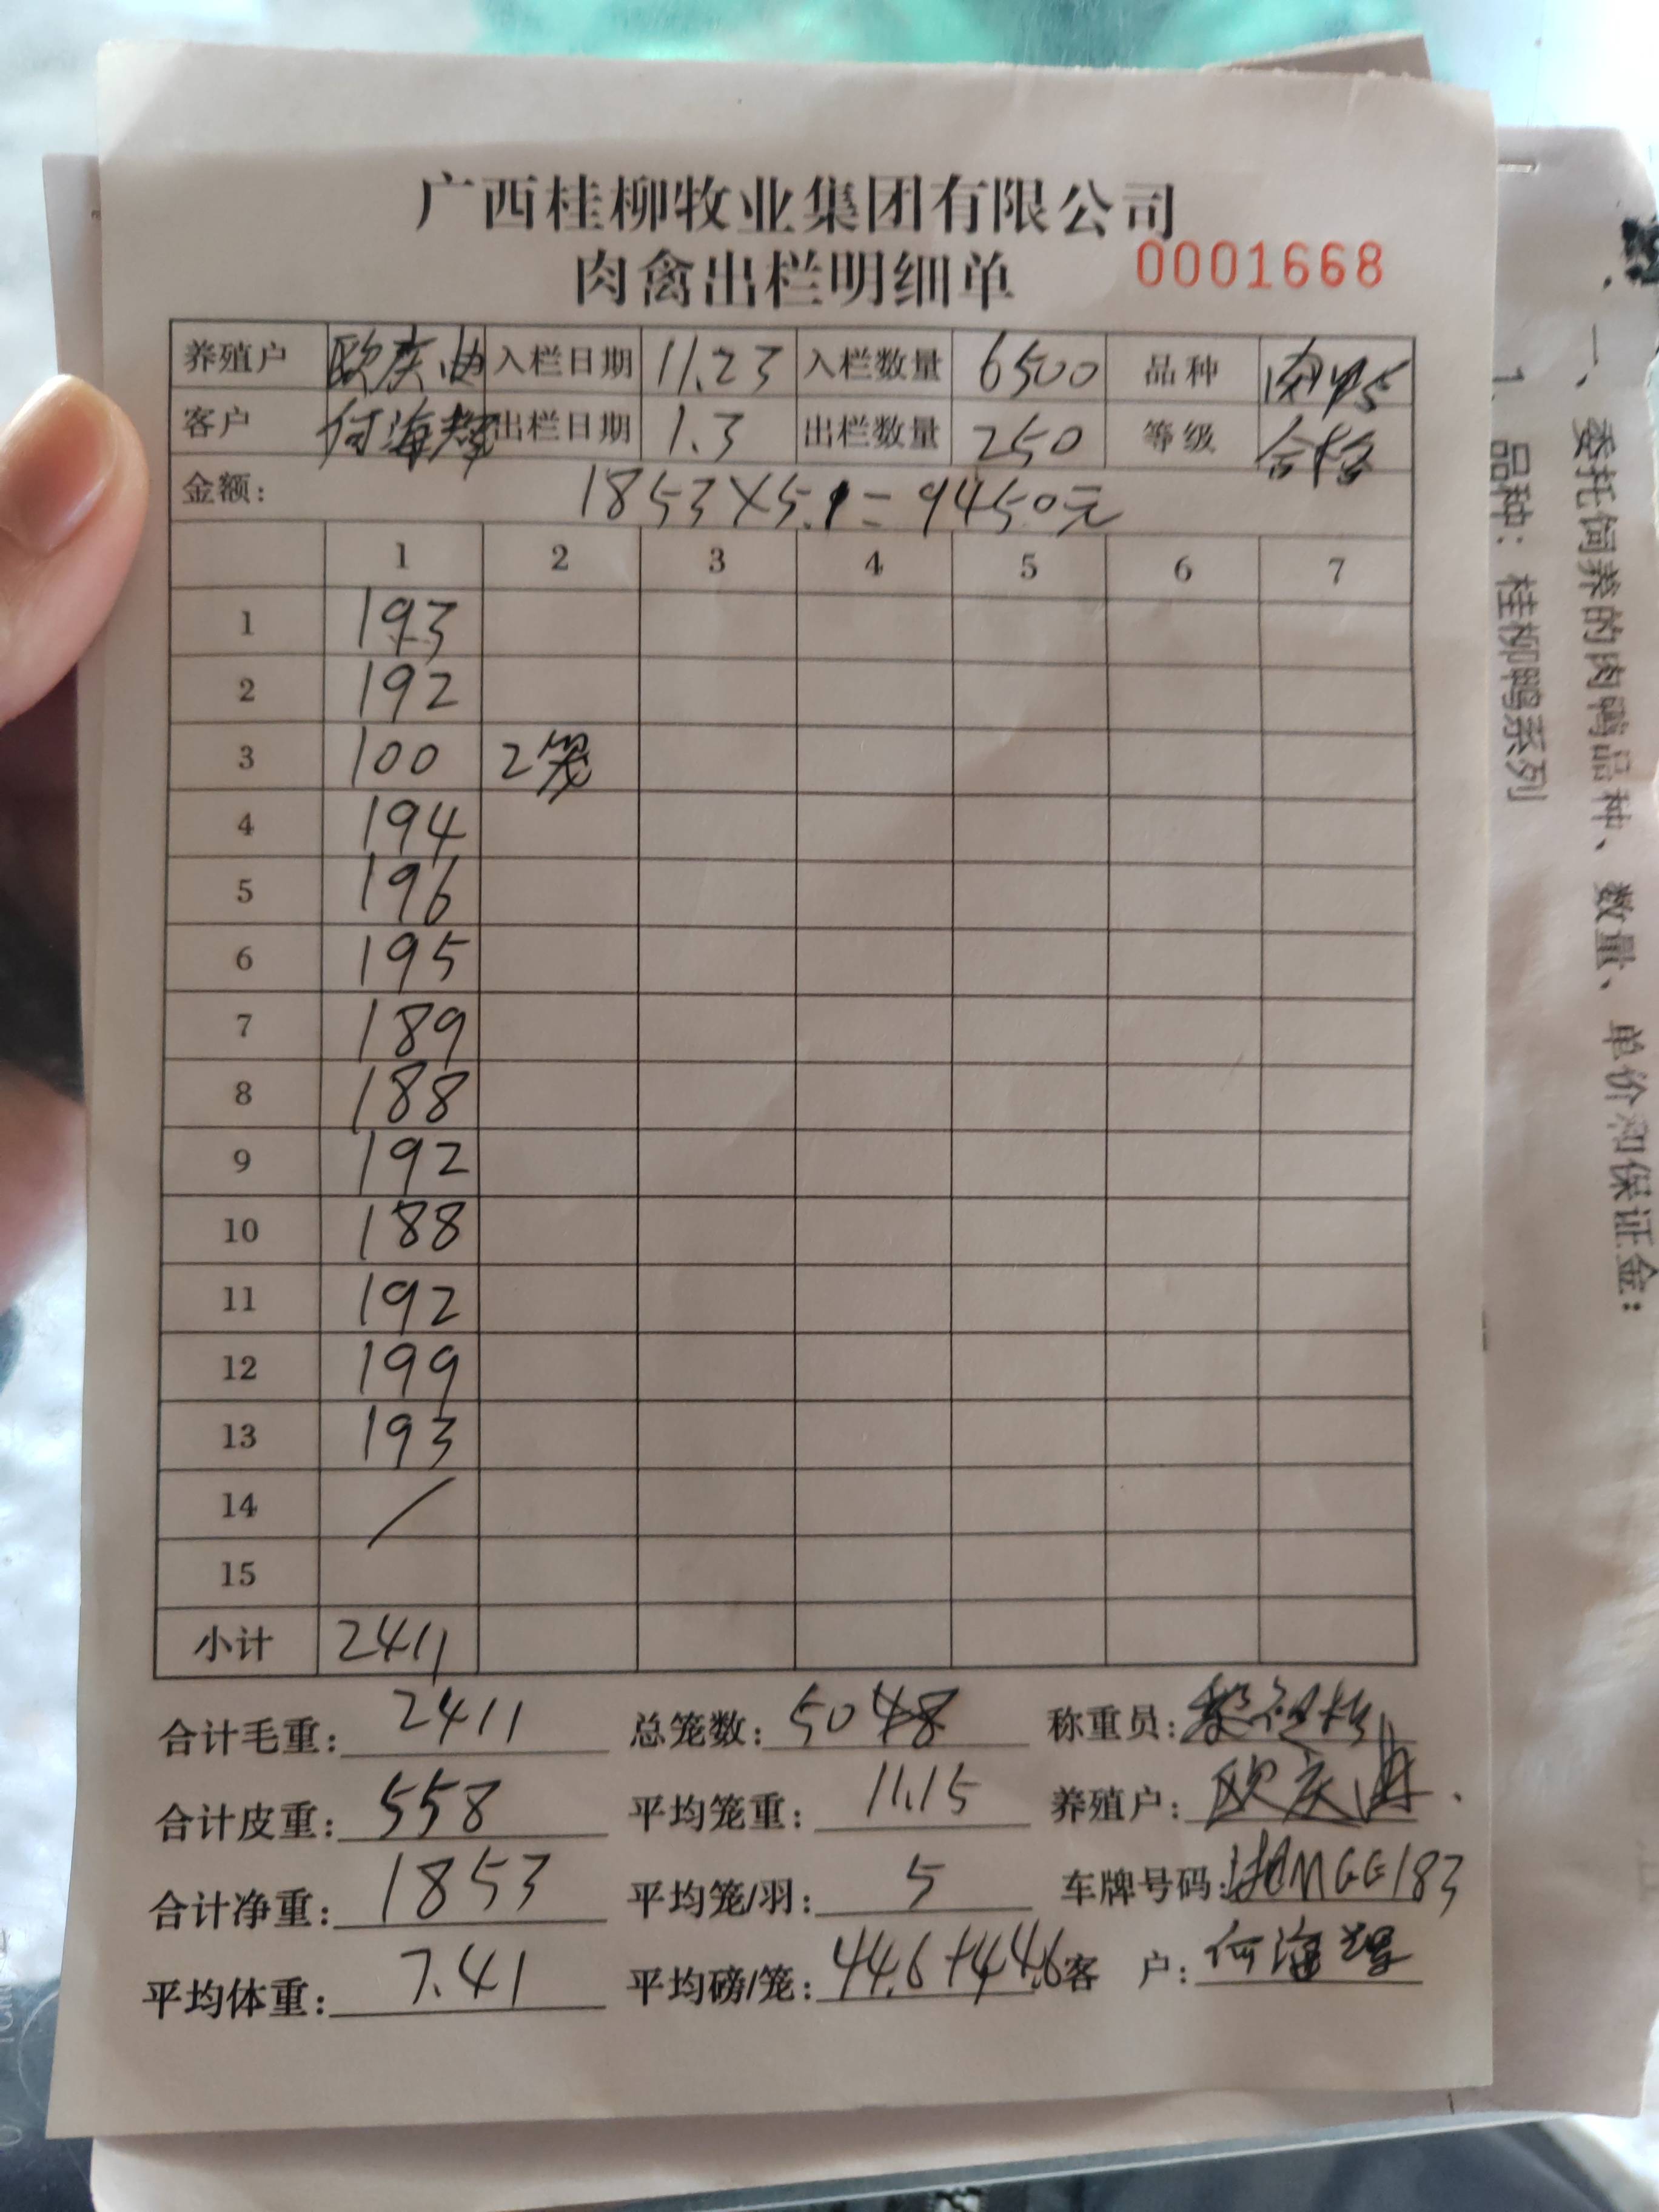 广西桂柳牧业集团有限公司
肉禽出栏明细单 0001668
养殖户 欧庆 入栏日期 11.23 入栏数量 6500 品种
客户 何海 出栏日期 1.3 出栏数量 250 等级 合格
金额: 1853×5.1=9450元
1 2 3 4 5 6 7
1 193
2 192
3 100 2笼
4 194
5 196
6 195
7 189
8 188
9 192
10 188
11 192
12 199
13 193
14 /
15
小计 2411
合计毛重: 2411 总笼数: 50 48 称重员:
合计皮重: 558 平均笼重: 11.15 养殖户: 欧庆
合计净重: 1853 平均笼/羽: 5 车牌号码: GG183
平均体重: 7.41 平均磅/笼: 44.6+44.6 客 户: 何海
一、委托饲养的肉鸭品种、数量、单价和保证金:
品种: 桂柳鸭系列